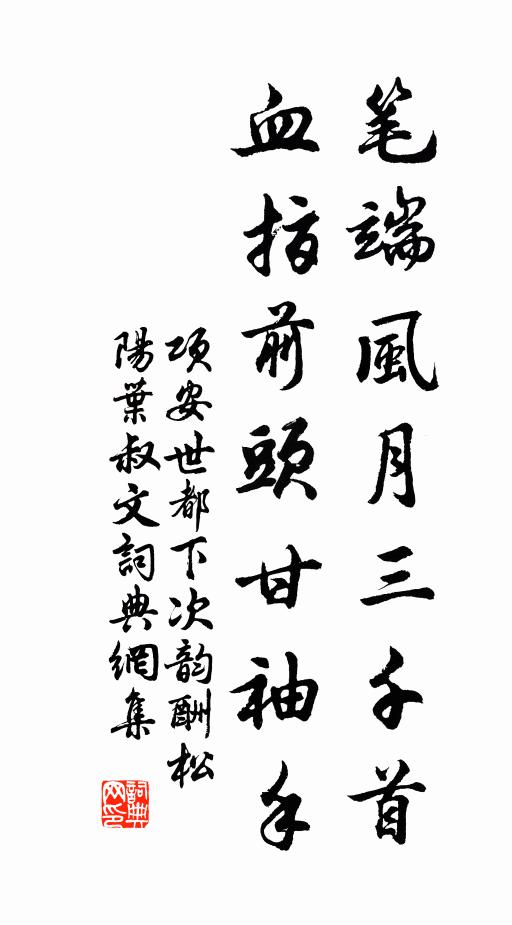 笔端風月三千首
血指前頭甘袖手
項安世都下次韵酬松
陽葉叔文詞典網集
詞典网印